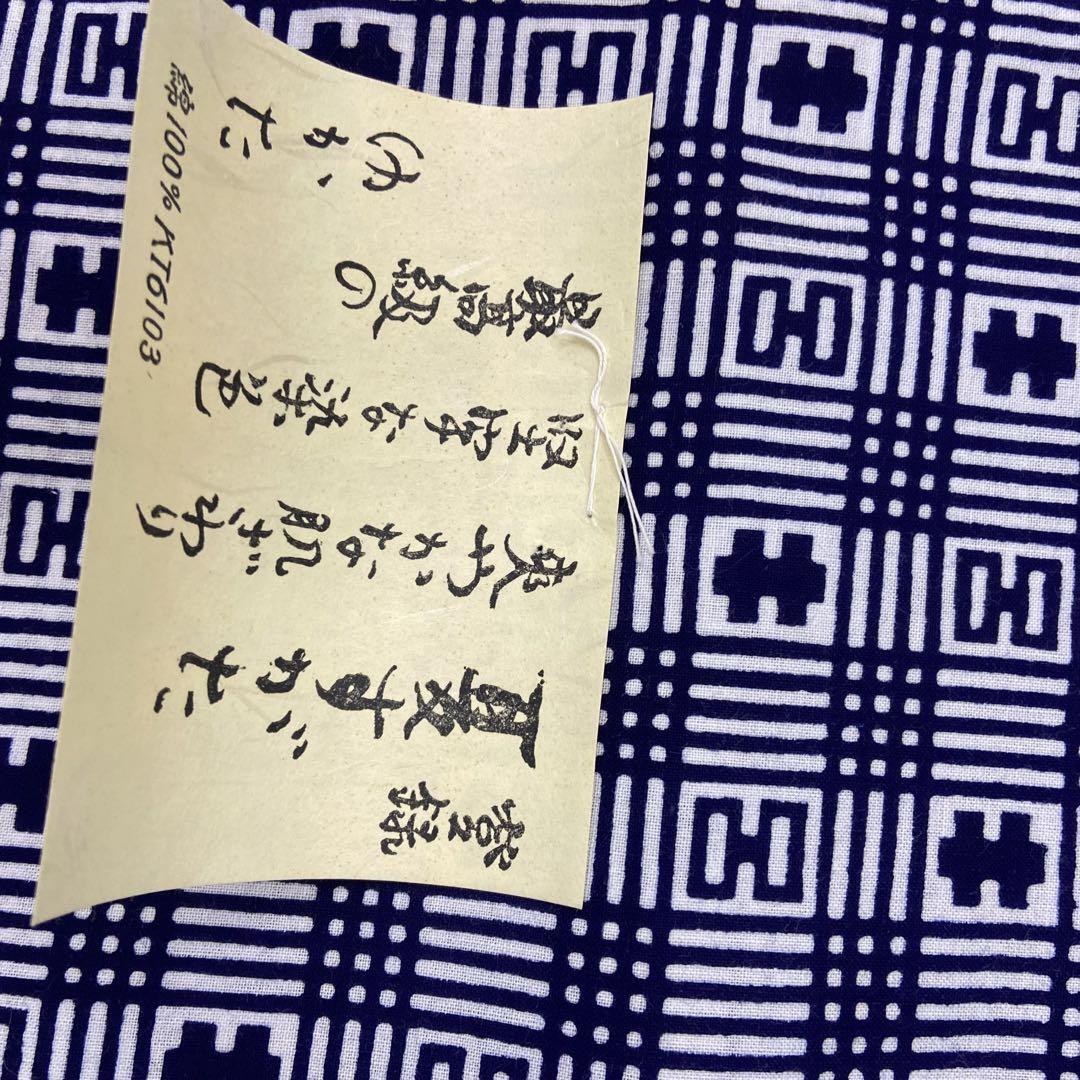 登録
夏すがた
爽やかな肌ざわり
堅牢な染色
最高級の
ゆかた
綿100% KT6103